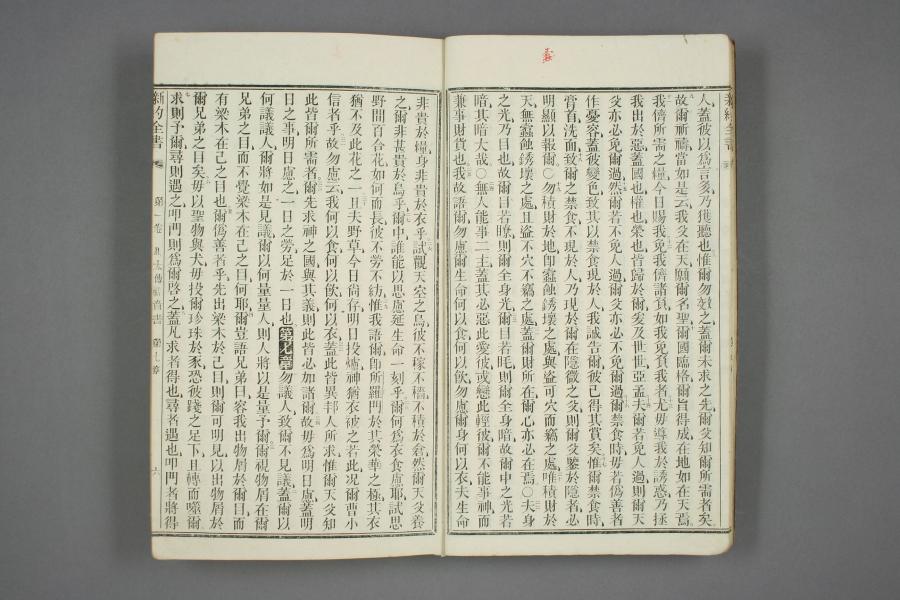 人蓋彼以爲言多乃獲聽也惟爾勿效之蓋爾未求之先爾父知爾所需者矣
故爾祈禱當如是云我父在天願爾名聖爾國臨格爾旨得成在地如在天焉
我儕所需之糧今日賜我免我儕諸負如我免負我者尤毋導我於誘惑乃拯
我出於惡蓋國也權也榮也皆歸於爾爰及世世亞孟夫爾若免人過則爾天
父亦必免爾過然爾若不免人過爾父亦必不免爾過爾禁食時毋若僞善者
作憂容蓋彼變色致其以禁食現於人我誠告爾彼已得其賞矣惟爾禁食時
膏首洗面致爾之禁食不現於人乃現於爾在隱微之父則爾父鑒於隱者必
明顯以報爾〇勿積財於地卽蠧蝕銹壞之處與盜可穴而竊之處唯積財於
天無蠧蝕銹壞之處且盜不穴不竊之處蓋爾財所在爾心亦必在焉〇夫身
之光乃目也故爾目若瞭則爾全身光爾目若眊則爾全身暗故爾中之光若
暗其暗大哉〇無人能事二主蓋其必惡此愛彼或戀此輕彼爾不能事神而
兼事財貨也我故語爾勿慮爾生命何以食何以飲勿慮爾身何以衣夫生命
新約全書 第一卷 馬太傳福音書 第七章 六
非貴於糧身非貴於衣乎試觀天空之鳥彼不稼不穡不積於倉然爾天父養
之爾非甚貴於鳥乎爾中誰能以思慮延生命一刻乎爾何爲衣食慮耶試思
野間百合花如何而長彼不勞不紡惟我語爾卽所羅門於其榮華之極其衣
猶不及此花之一且夫野草今日尚存明日投爐神猶衣被之若此况爾曹小
信者乎故勿慮云我何以食何以飲何以衣蓋此皆異邦人所求惟爾天父知
此皆爾所需者爾先求神之國與其義則此皆必加諸爾故毋爲明日慮蓋明
日之事明日慮之一日之勞足於一日也第七章勿議人致爾不見議蓋爾以
何議議人爾將如是見議爾以何量量人則人將以是量予爾爾視物屑在爾
兄弟之目而不覺梁木在己之目何耶爾豈語兄弟曰容我出物屑於爾目而
有梁木在己之目也爾僞善者乎先出梁木於己目則爾可明見以出物屑於
爾兄弟之目矣毋以聖物與犬毋投爾珍珠於豕恐彼踐之足下且轉而噬爾
求則予爾尋則遇之叩門則爲爾啓之蓋凡求者得也尋者遇也叩門者將得
新約全書